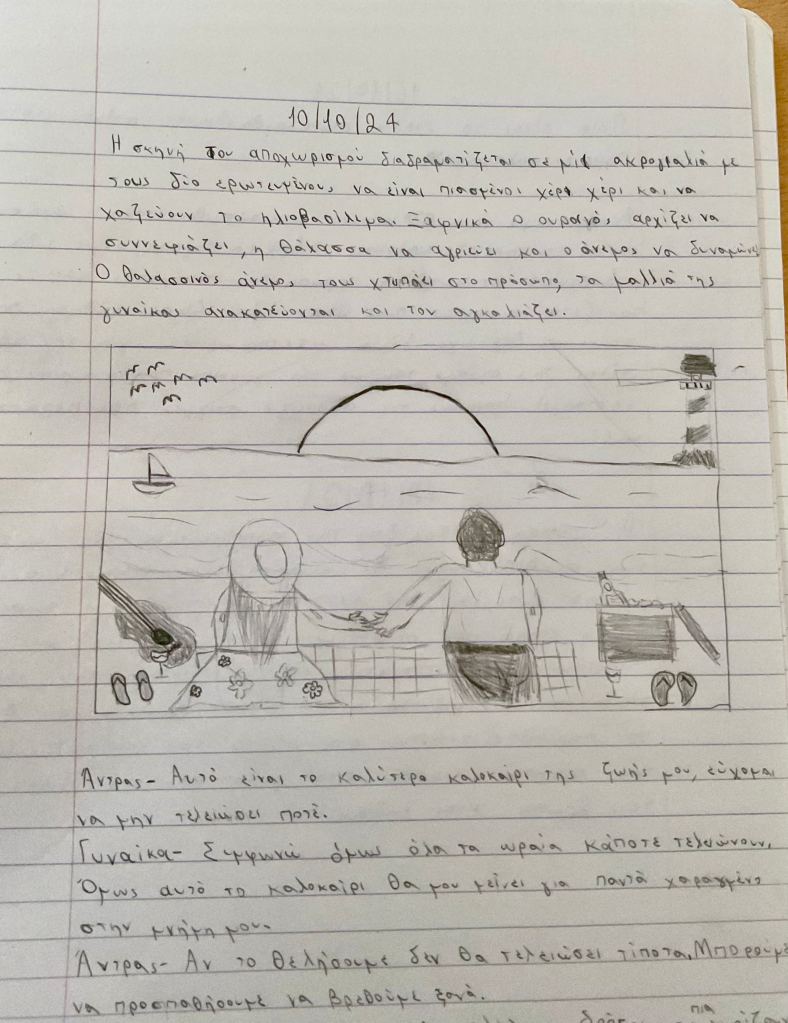 10/10/24
Η σκηνή του αποχωρισμού διαδραματίζεται σε μία ακρογιαλιά με
τους δύο ερωτευμένους να είναι πιασμένοι χέρι χέρι και να
χαζεύουν το ηλιοβασίλεμα. Ξαφνικά ο ουρανός αρχίζει να
συννεφιάζει, η θάλασσα να αγριεύει και ο άνεμος να δυναμώνει
Ο θαλασσινός άνεμος τους χτυπάει στο πρόσωπο, τα μαλλιά της
γυναίκας ανακατεύονται και τον αγκαλιάζει.
Άντρας- Αυτό είναι το καλύτερο καλοκαίρι της ζωής μου, εύχομαι
να μην τελειώσει ποτέ.
Γυναίκα- Συμφωνώ όμως όλα τα ωραία κάποτε τελειώνουν.
Όμως αυτό το καλοκαίρι θα μου μείνει για παντά χαραγμένο
στην μνήμη μου.
Άντρας- Αν το θελήσουμε δεν θα τελειώσει τίποτα. Μπορούμε
να προσπαθήσουμε να βρεθούμε ξανά.
πια